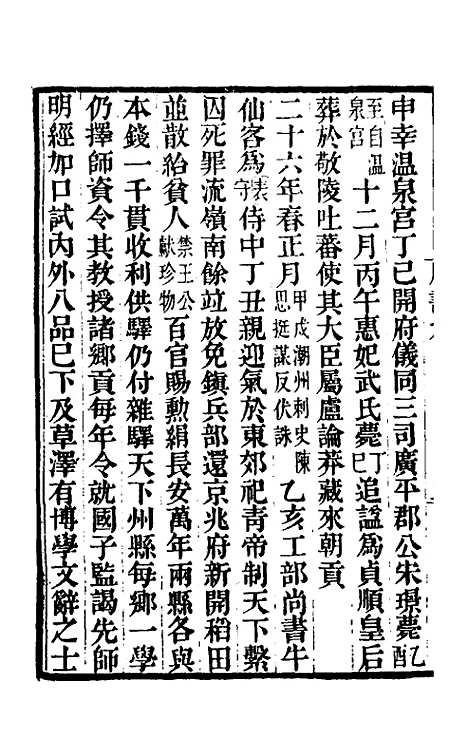 申幸溫泉宮丁巳開府儀同三司廣平郡公宋璟薨乙酉
至自溫泉宮十二月丙午惠妃武氏薨丁巳追諡爲貞順皇后
葬於敬陵吐蕃使其大臣屬盧論莽藏來朝貢
二十六年春正月甲戌潮州刺史陳思挺謀反伏誅乙亥工部尚書牛
仙客爲侍中丁丑親迎氣於東郊祀青帝制天下繫
囚死罪流嶺南餘竝放免鎭兵部還京兆府新開稻田
並散給貧人禁王公獻珍物百官賜勳絹長安萬年兩縣各與
本錢一千貫收利供驛仍付雜驛天下州縣每鄉一學
仍擇師資令其教授諸鄉貢每年令就國子監謁先師
明經加口試內外八品已下及草澤有博學文辭之士